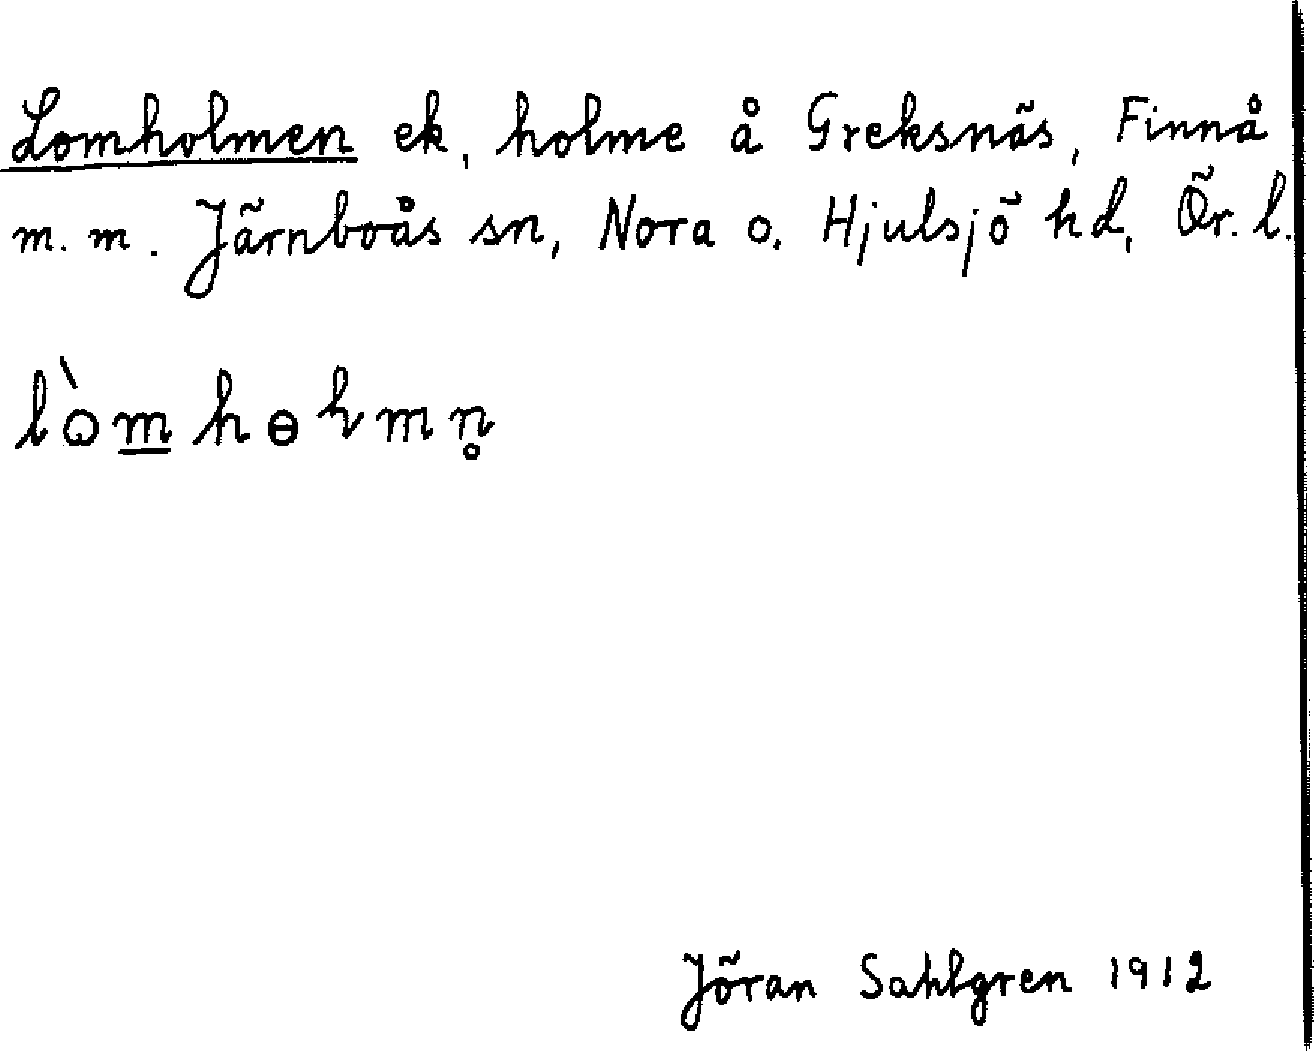 Lomholmen ek, holme å Greksnäs, Finnå
m. m. Järnboås sn, Nora o. Hjulsjö hd, Ör. l.
lòm̲hɵɽmn̥
Jöran Sahlgren 1912